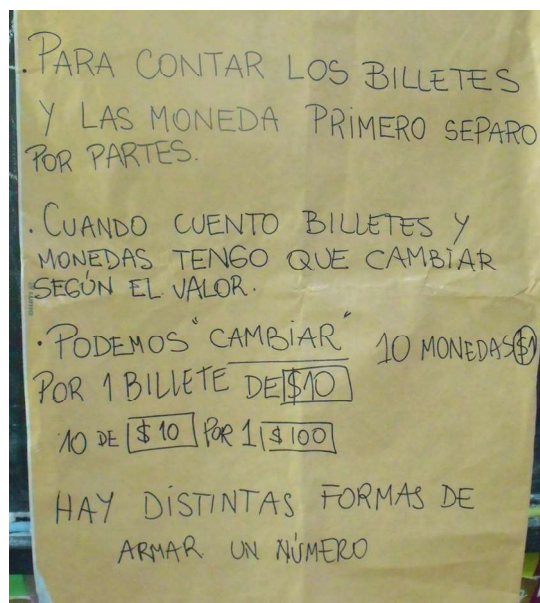 . PARA CONTAR LOS BILLETES
Y LAS MONEDA PRIMERO SEPARO
POR PARTES.
. CUANDO CUENTO BILLETES Y
MONEDAS TENGO QUE CAMBIAR
SEGÚN EL VALOR.
. PODEMOS "CAMBIAR" 10 MONEDAS $1
POR 1 BILLETE DE $10
10 DE $10 POR 1 $100
HAY DISTINTAS FORMAS DE
ARMAR UN NÚMERO